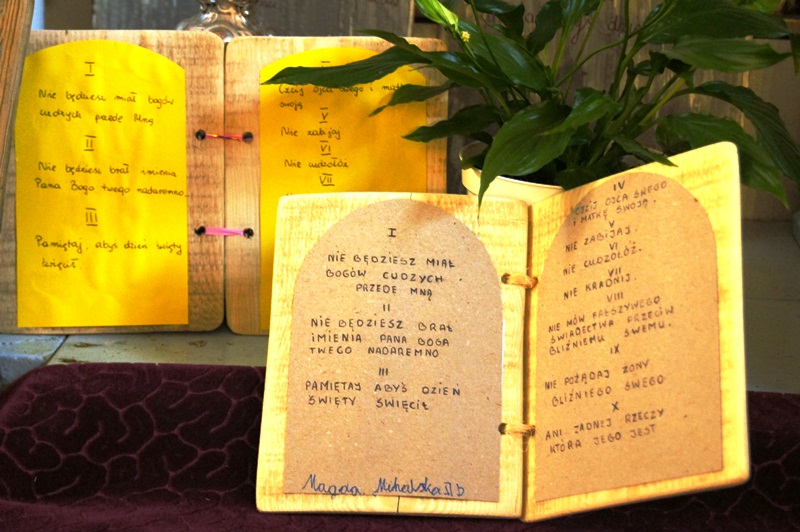 I
Nie będziesz miał bogów
cudzych przede Mną
II
Nie będziesz brał imienia
Pana Boga twego nadaremno.
III
Pamiętaj, abyś dzień święty
święcił
Czcij ojca swego i
swoją
V
Nie zabijaj
VI
Nie cudzołóż
VII
I
NIE BĘDZIESZ MIAŁ
BOGÓW CUDZYCH
PRZEDE MNĄ
II
NIE BĘDZIESZ BRAŁ
IMIENIA PANA BOGA
TWEGO NADAREMNO
III
PAMIĘTAJ ABYŚ DZIEŃ
ŚWIĘTY ŚWIĘCIŁ
Magda
IV
CZCIJ OJCA SWEGO
I MATKĘ SWOJĄ.
V
NIE ZABIJAJ.
VI
NIE CUDZOŁÓŻ.
VII
NIE KRADNIJ.
VIII
NIE MÓW FAŁSZYWEGO
ŚWIADECTWA PRZECIW
BLIŹNIEMU SWEMU.
IX
NIE POŻĄDAJ ŻONY
BLIŹNIEGO SWEGO
X
ANI ŻADNEJ RZECZY
KTÓRA JEGO JEST